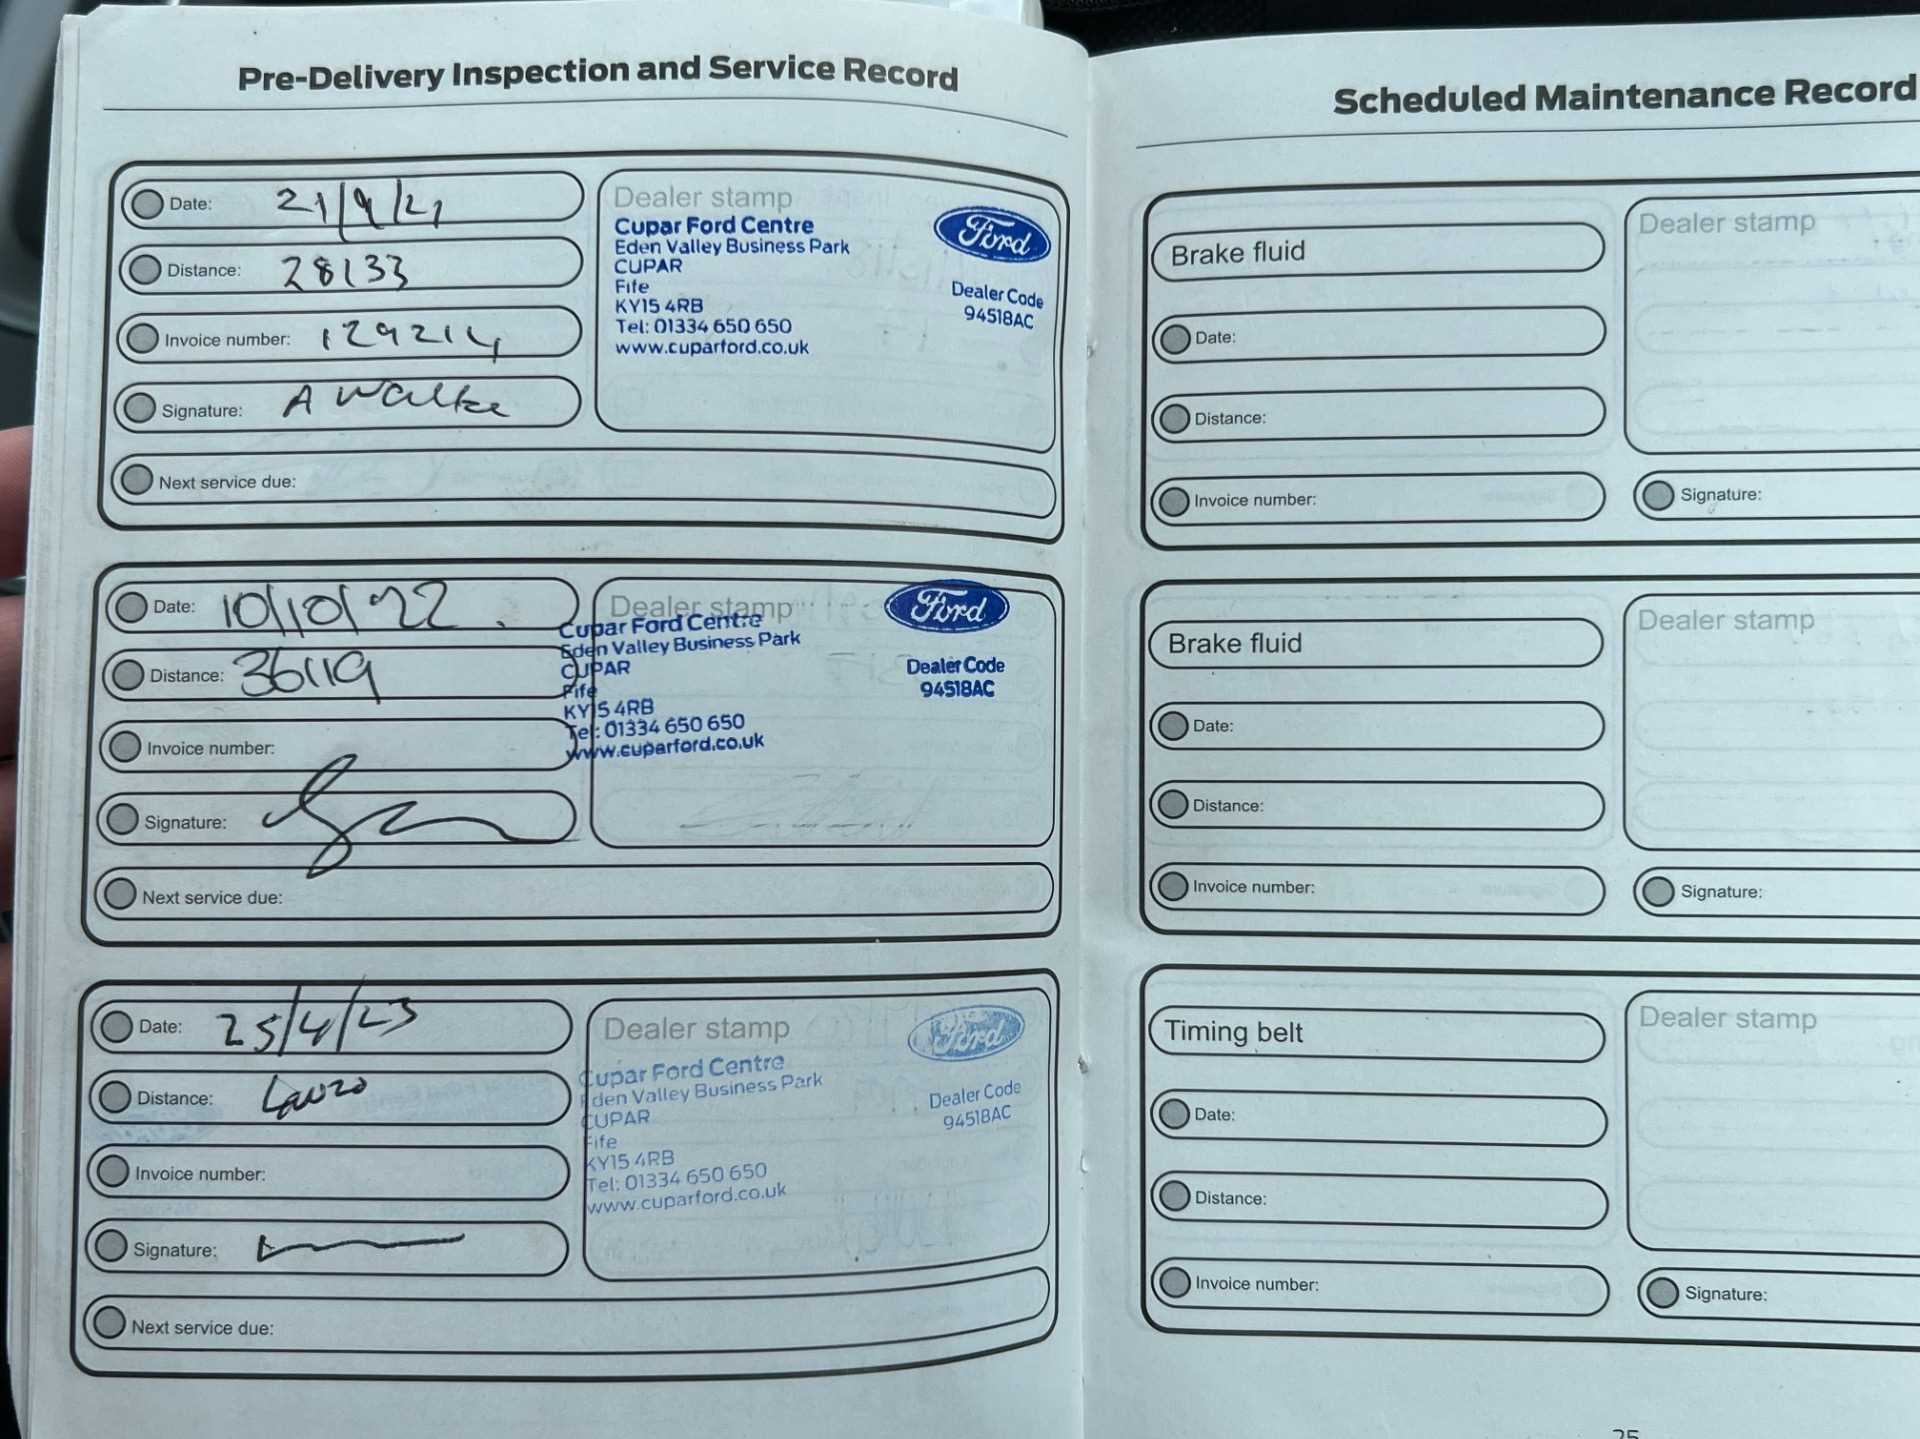 Pre-Delivery Inspection and Service Record
Date: 21/9/21
Distance: 28133
Invoice number: 129214
Signature: A Walke
Next service due:
Dealer stamp
Cupar Ford Centre
Eden Valley Business Park
CUPAR
Fife
KY15 4RB
Tel: 01334 650 650
www.cuparford.co.uk
Ford
Dealer Code
94518AC
Date: 10/10/22.
Distance: 36119
Invoice number:
Signature:
Next service due:
Dealer stamp
Cupar Ford Centre
Eden Valley Business Park
CUPAR
Fife
KY15 4RB
Tel: 01334 650 650
www.cuparford.co.uk
Ford
Dealer Code
94518AC
Date: 25/4/23
Distance:
Invoice number:
Signature:
Next service due:
Dealer stamp
Cupar Ford Centre
Eden Valley Business Park
CUPAR
Fife
KY15 4RB
Tel: 01334 650 650
www.cuparford.co.uk
Ford
Dealer Code
94518AC
Scheduled Maintenance Record
Brake fluid
Date:
Distance:
Invoice number:
Dealer stamp
Signature:
Brake fluid
Date:
Distance:
Invoice number:
Dealer stamp
Signature:
Timing belt
Date:
Distance:
Invoice number:
Dealer stamp
Signature:
25